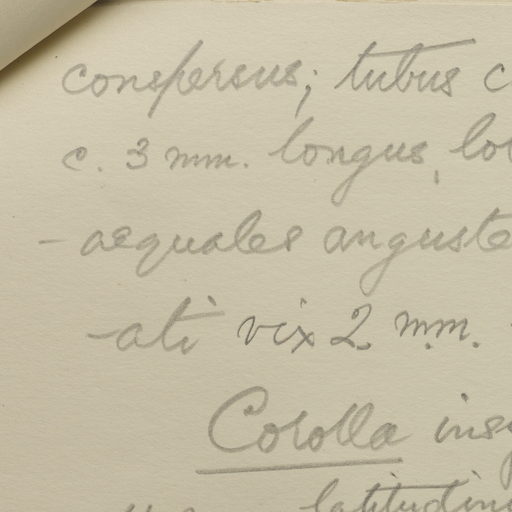 conspersus; tubus c
c. 3 mm. longus, lo
- aequales anguste
- ati vix 2 m.m.
Corolla ins
latitudin